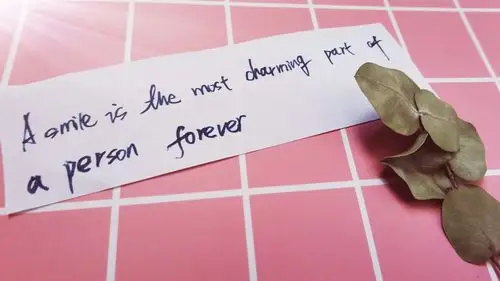 A smile is the most charming part of
a person forever